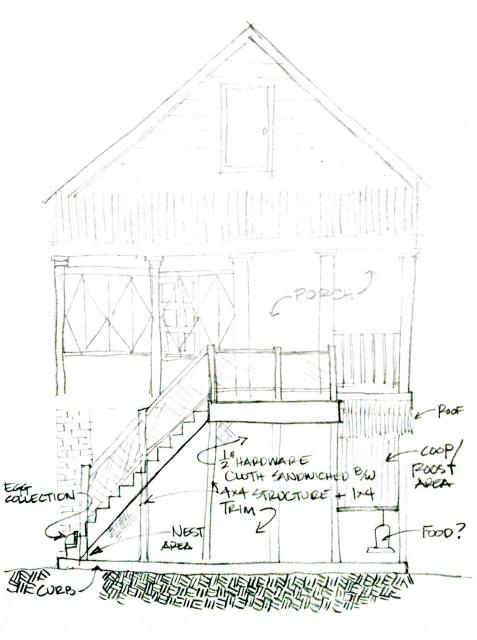 PORCH
ROOF
COOP/
ROOST
AREA
1/2" HARDWARE
CLOTH SANDWICHED B/W
4X4 STRUCTURE + 1X4
TRIM
EGG
COLLECTION
NEST
AREA
FOOD?
CURB